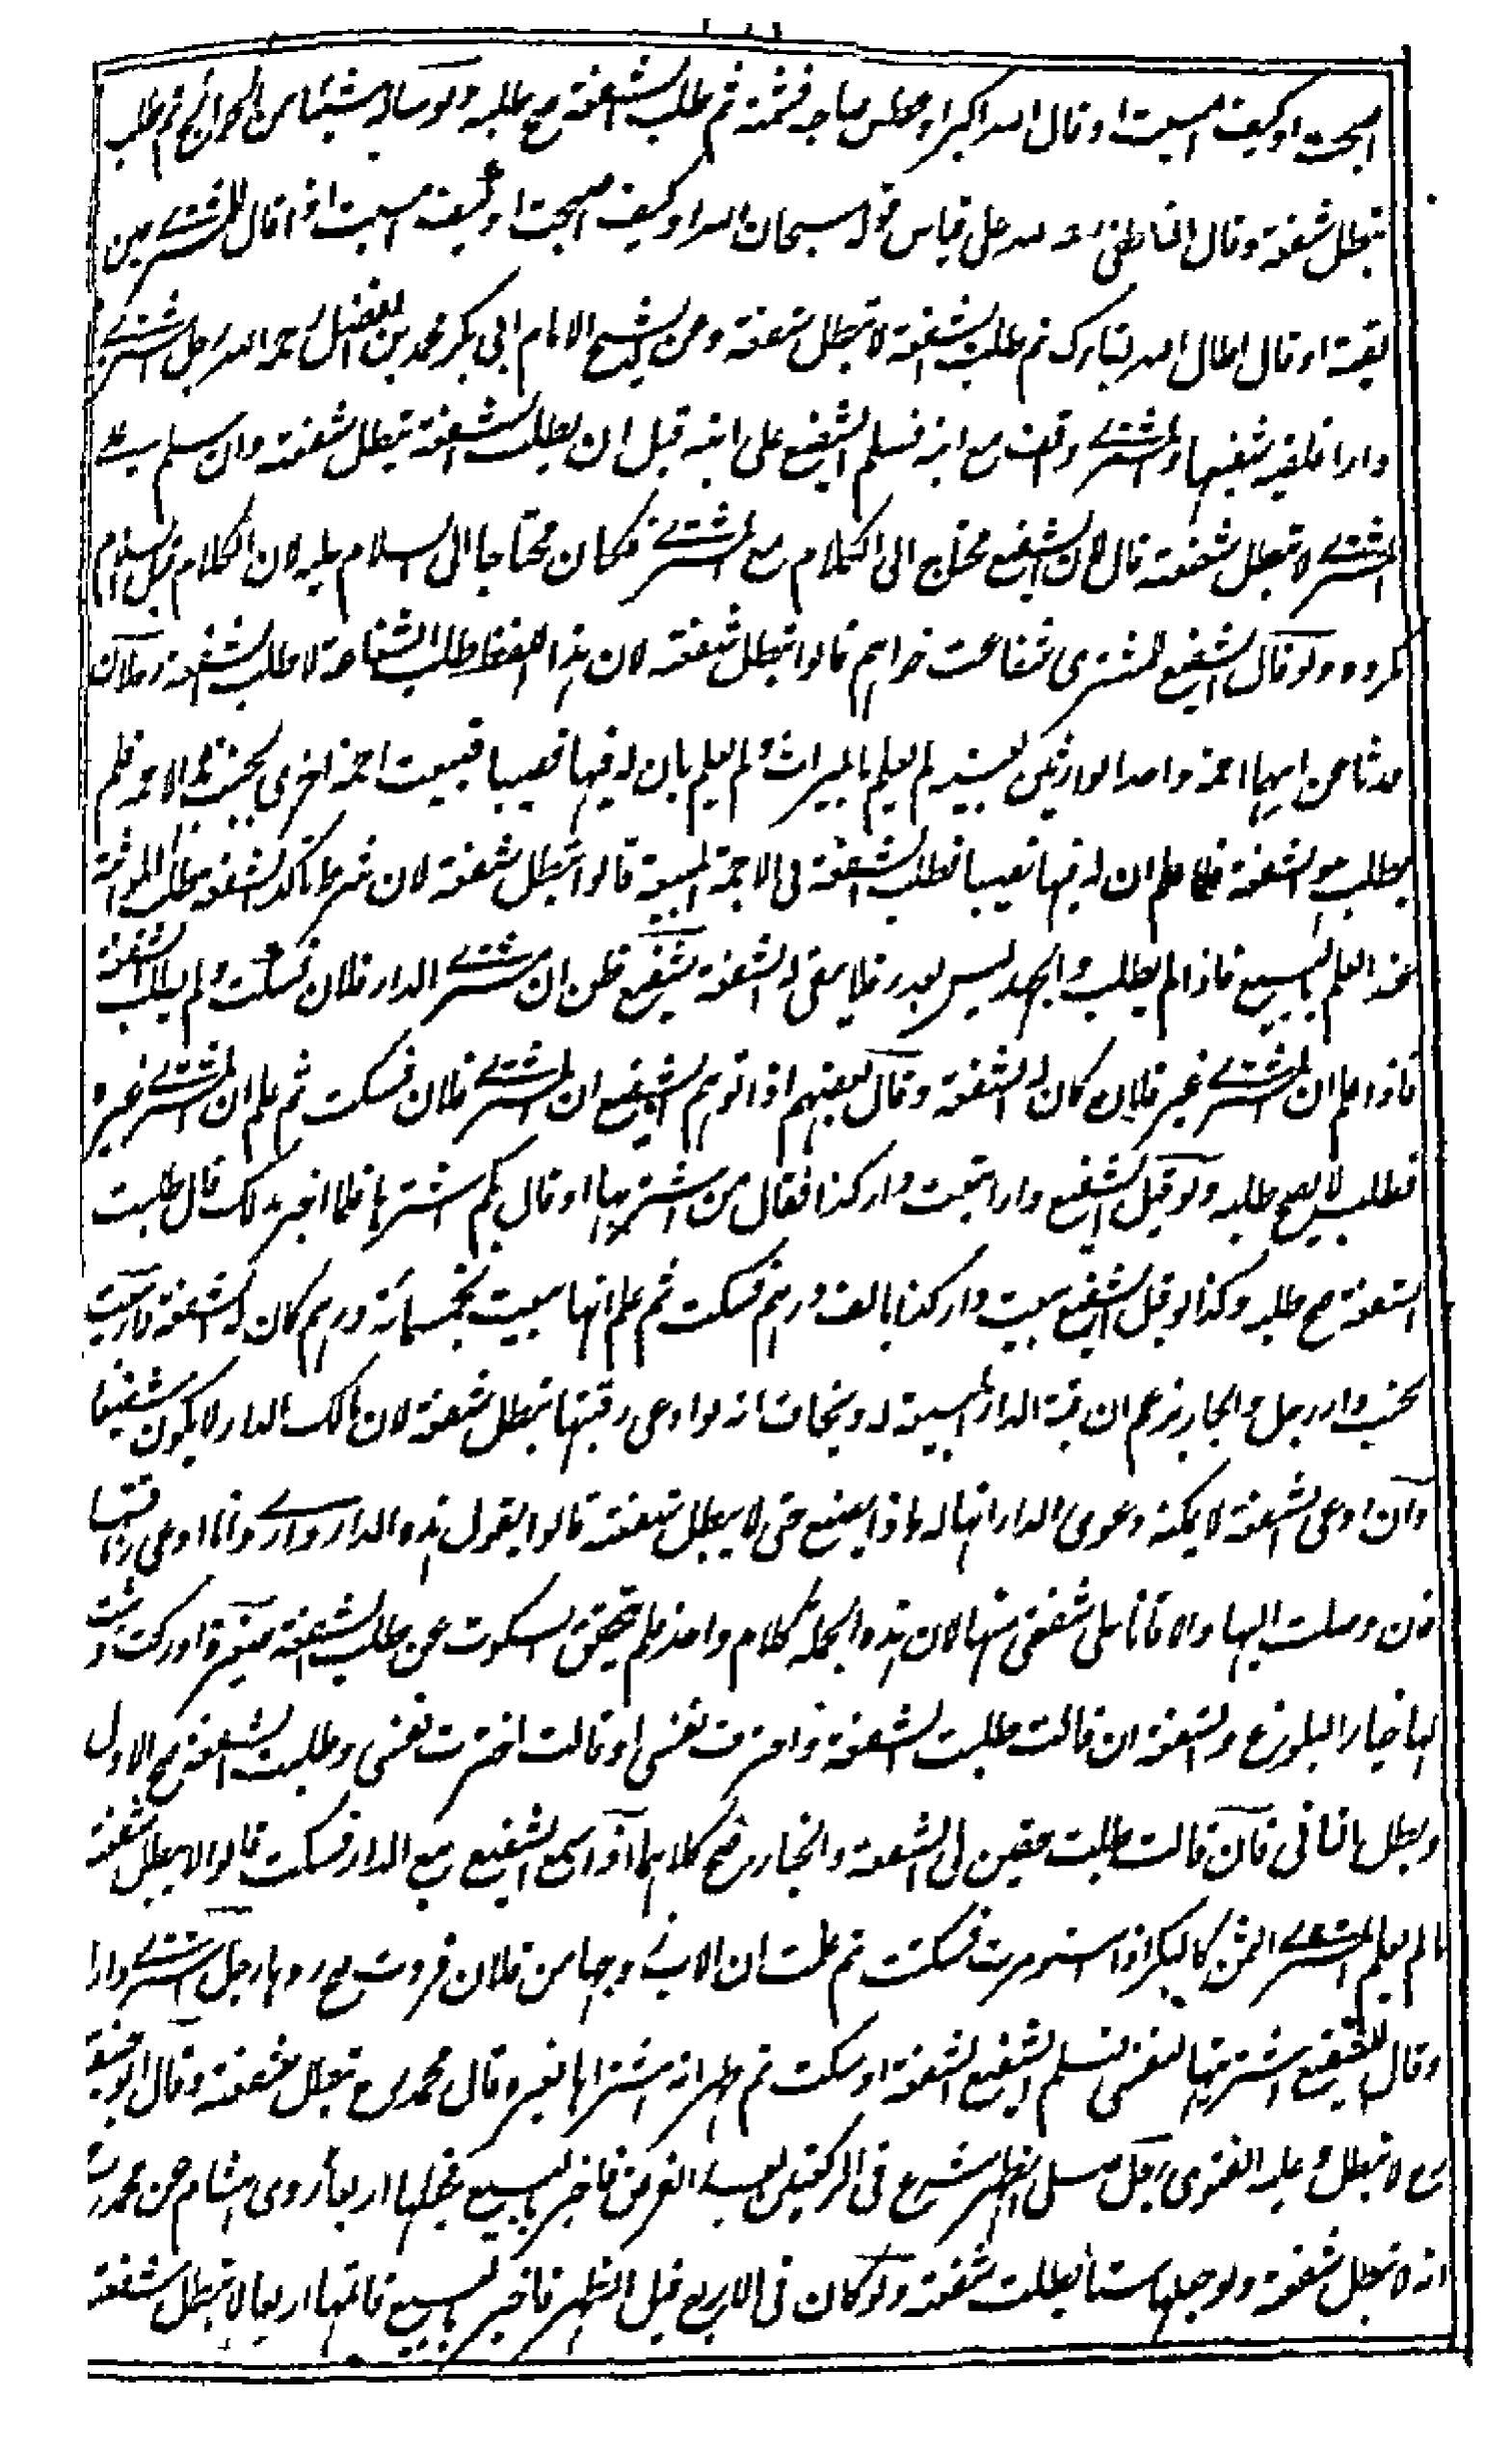 اصبحت او كيف امسيت او قال الله اكبر او عطس صاحبه فشمته ثم طلب الشفعة صح طلبه ولو ساله شيئا من الحوائج ثم طلب
تبطل شفعته وقال الناطفى رحمه الله على قياس قوله سبحان الله او كيف اصبحت او كيف امسيت اذا قال للمشترے حين
لقيه او قال اطال الله بقاءك ثم طلب الشفعة لا تبطل شفعته وعن الشيخ الامام ابى بكر محمد بن الفضل رحمه الله رجل اشترے
دارا فلقيه شفيعها والمشترے واقف مع ابنه فسلم الشفيع على ابنه قبل ان يطلب الشفعة تبطل شفعته وان سلم على
المشترے لا تبطل شفعته قال لان الشفيع محتاج الى الكلام مع المشترے فكان محتاجا الى السلام عليه لان الكلام قبل السلام
مكروه ولو قال الشفيع للمشترى شفاعت خواهم قالوا تبطل شفعته لان هذا اللفظ طلب الشفاعة لا طلب الشفعة رجلان
ورثا عن ابيهما اجمة واحد الوارثين بعينه لم يعلم بالميراث ولم يعلم بان له فيها نصيبا فبيعت اجمة اخرى بجنب تلك الاجمة فلم
يطلب هو الشفعة فلما علم ان له فيها نصيبا فطلب الشفعة فى الاجمة المبيعة قالوا تبطل شفعته لان شرط تاكد الشفعة طلب المواثبة
عند العلم بالبيع فاذا لم يطلب والجهل ليس بعذر فلا يبقى له الشفعة شفيع ظن ان مشترے الدار فلان فسكت ولم يطلب الشفعة
فاذا علم ان المشترے غير فلان كان له الشفعة وقال بعضهم اذا توهم الشفيع ان المشترے فلان فسكت ثم علم ان المشترے غيره
فطلب لا يصح طلبه ولو قيل للشفيع دارا بيعت دار كذا فقال من اشتريها او قال بكم اشتريها فلما اخبر بذلك قال طلبت
الشفعة صح طلبه وكذا لو قيل للشفيع بيعت دار كذا بالف درهم فسكت ثم علم انها بيعت بخمسمائة درهم كان له الشفعة دار بيعت
بجنب دار رجل والجار يزعم ان رقبة الدار المبيعة له ويخاف انه لو ادعى رقبتها تبطل شفعته لان مالك الدار لا يكون شفيعا
وان ادعى الشفعة لا يمكنه دعوى الدار انها له ماذا يصنع حتى لا يبطل شفعته قالوا يقول هذه الدار دارے وانا ادعى رقبتها
فان وصلت اليها والا فانا على شفعتى منها لان هذه الجملة كلام واحد فلم يتحقق السكوت عن طلب الشفعة صغيرة ادركت وثبت
لها خيار البلوغ والشفعة ان قالت طلبت الشفعة واخترت نفسى او قالت اخترت نفسى وطلبت الشفعة صح الاول
وبطل الثانى فان قالت طلبت حقين لى الشفعة والخيار صح كلاهما اذا سمع الشفيع بيع الدار فسكت قالوا لا يبطل شفعته
ما لم يعلم المشترے والثمن كالبكر اذا استؤمرت فسكتت ثم علمت ان الاب زوجها من فلان فردت صح ردها رجل اشترے دارا
وقال للشفيع اشتريتها لنفسى فسلم الشفيع الشفعة او سكت ثم ظهر انه اشتراها لغيره قال محمد رح تبطل شفعته وقال ابو حنيفة
رح لا تبطل وعليه الفتوى رجل صلى الظهر شرع فى الركعتين بعد الفرض فاخبر بالبيع فجعلها اربعا روى هشام عن محمد رح
انه لا تبطل شفعته ولو جعلها ستا بطلت شفعته ولو كان فى الاربع قبل الظهر فاخبر بالبيع فاتمها اربعا لا تبطل شفعته